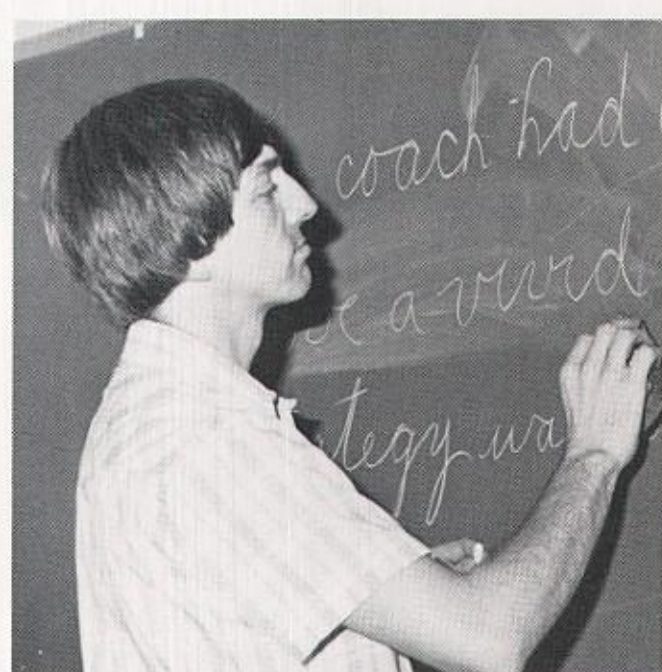 coach had
e a vivid
tegy wa